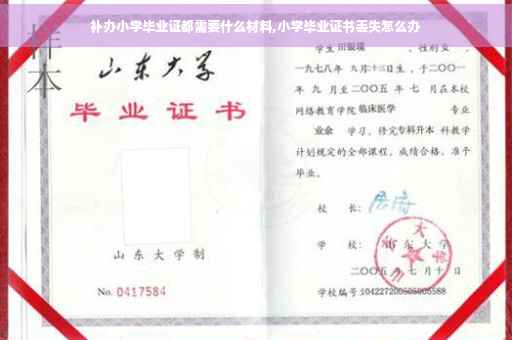 补办小学毕业证都需要什么材料,小学毕业证书丢失怎么办
样本
山东大学
毕业证书
山东大学制
No. 0417584
学生 田银瑞 ,性别 女 ,
一九七八年 九月十三日生,于二〇〇一
年 九 月至二〇〇五 年 七 月在本校
网络教育学院 临床医学 专业
业余 学习,修完 专科升本 科教学
计划规定的全部课程,成绩合格,准予
毕业。
校 长:
学 校: 山东大学
二〇〇五 年 七 月 十 日
学校编号:104227200505005588